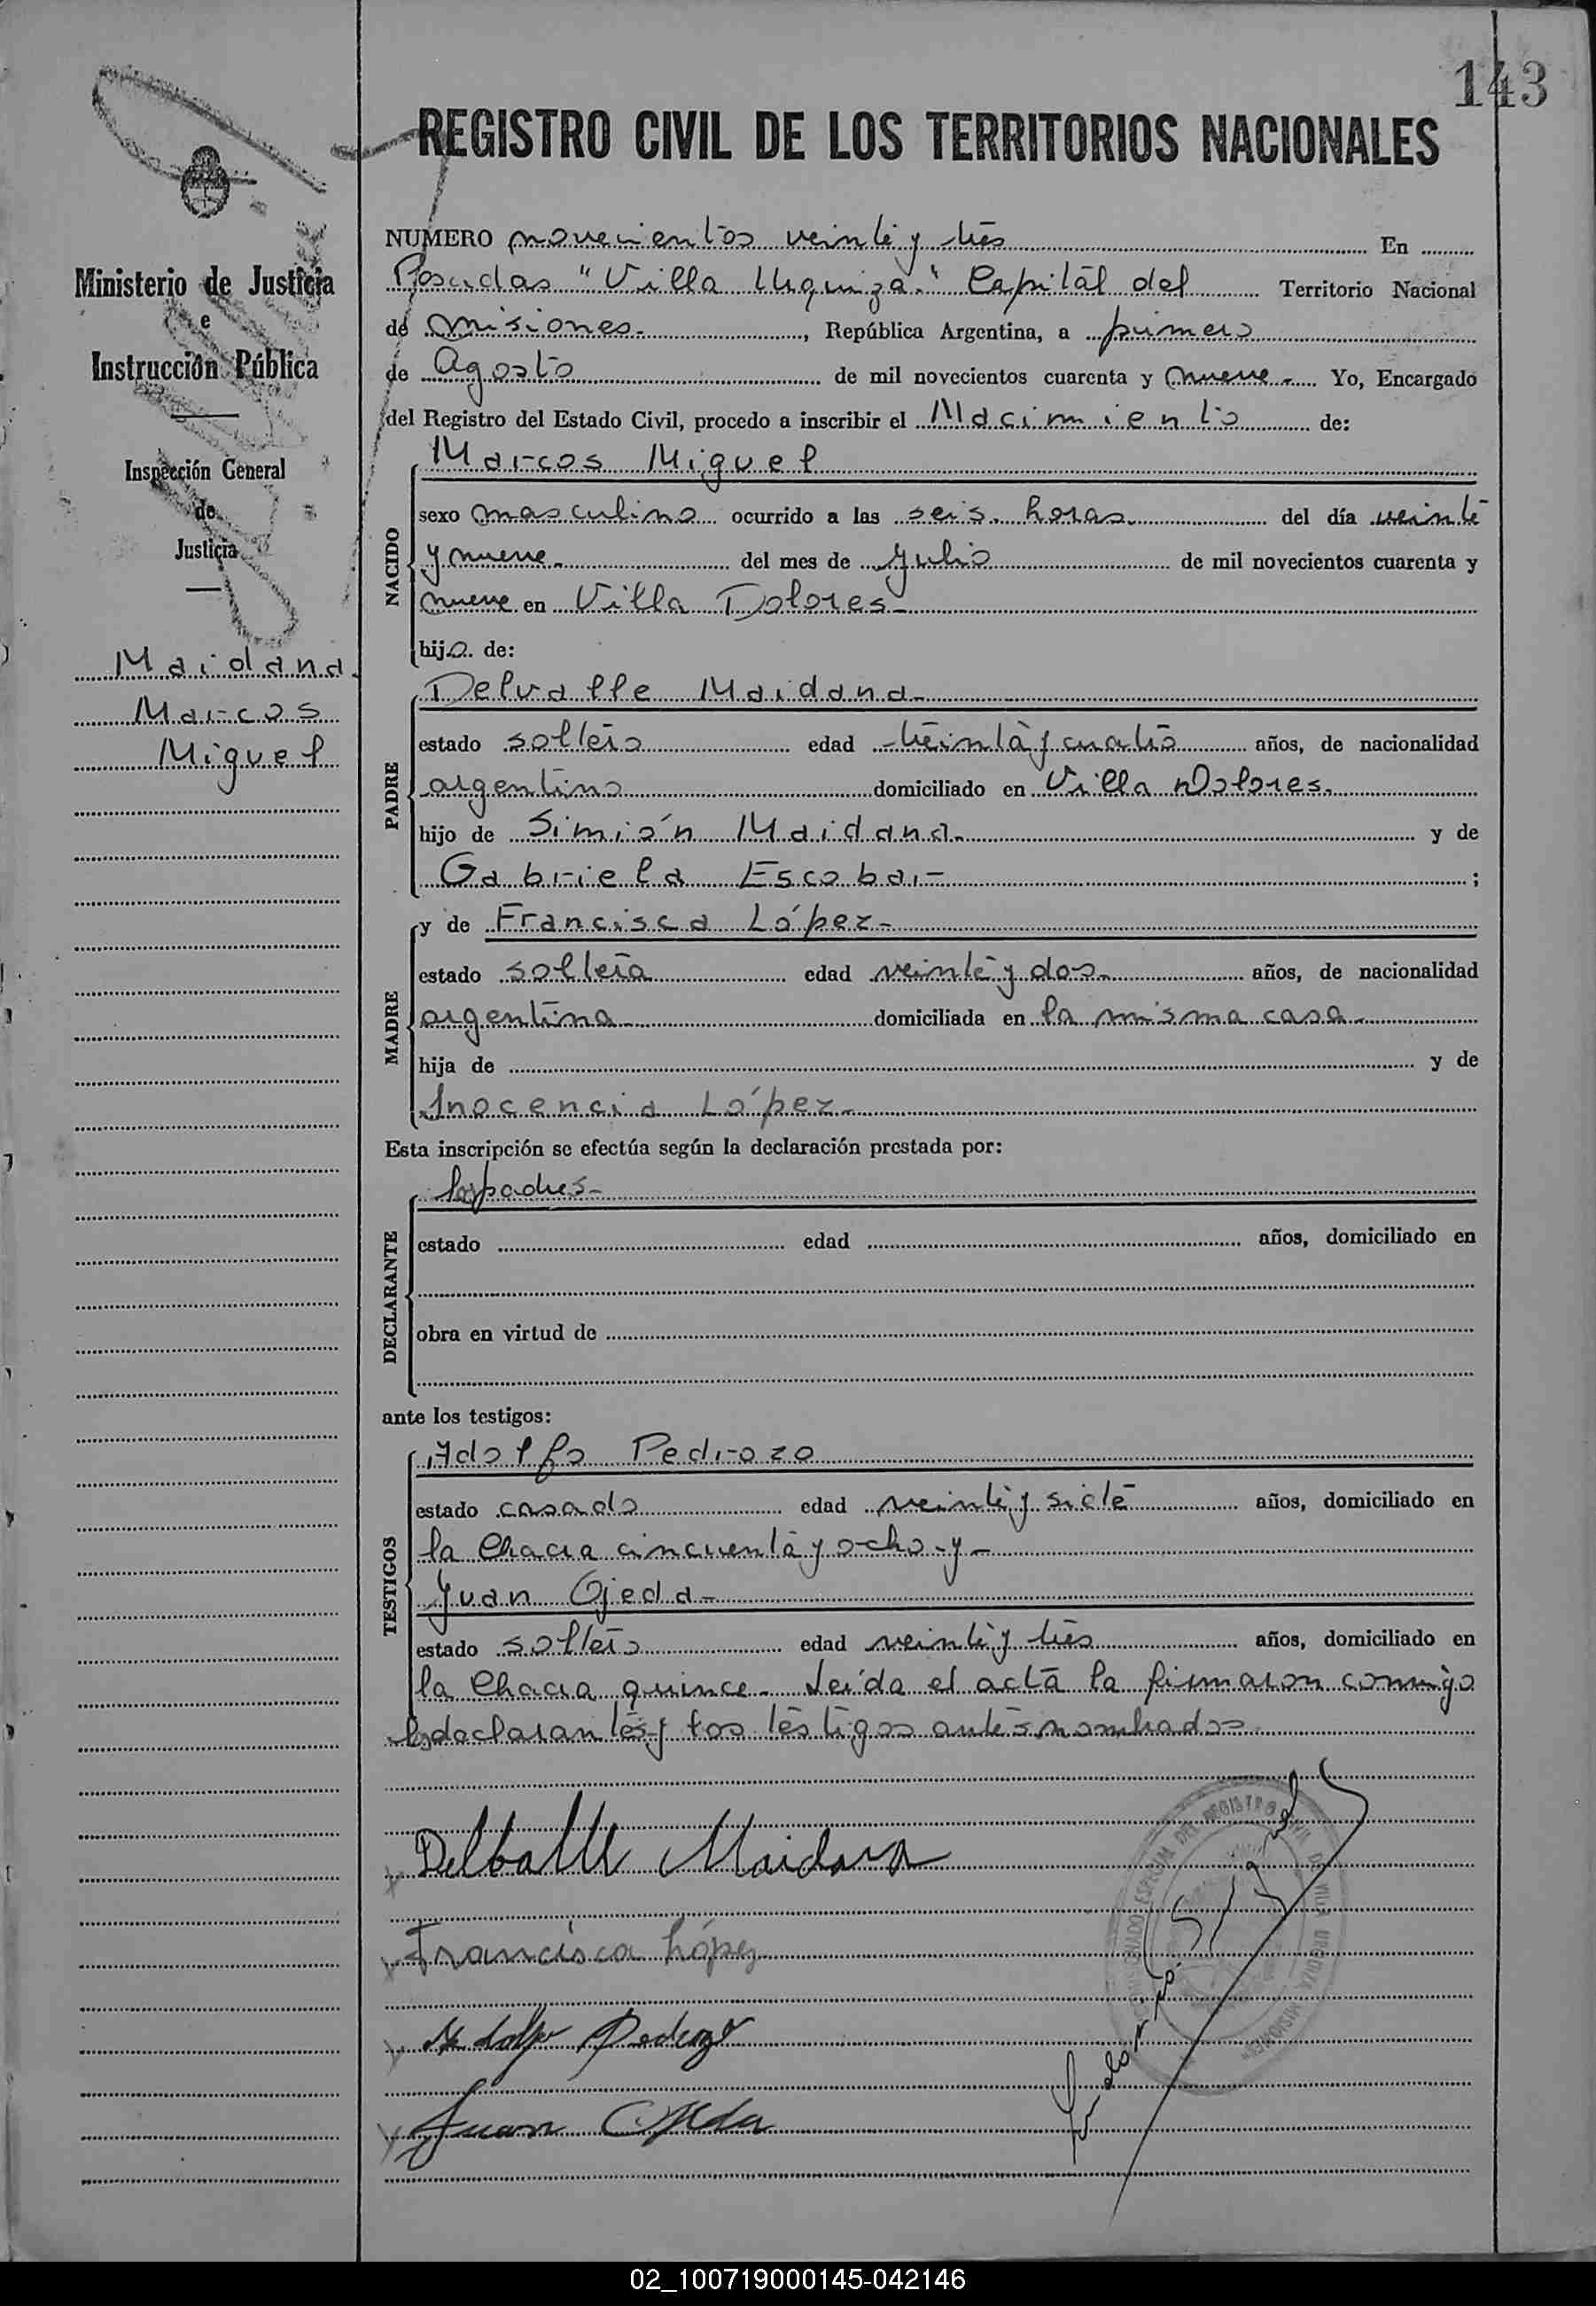 143
REGISTRO CIVIL DE LOS TERRITORIOS NACIONALES
Ministerio de Justicia
e
Instrucción Pública
Inspección General
de
Justicia
Maidana
Marcos
Miguel
NUMERO novecientos veinte y tres En
Posadas "Villa Urquiza." Capital del Territorio Nacional
de Misiones. , República Argentina, a primero
de Agosto de mil novecientos cuarenta y nueve - Yo, Encargado
del Registro del Estado Civil, procedo a inscribir el Nacimiento de:
Marcos Miguel
NACIDO
sexo masculino ocurrido a las seis horas del día veinte
y nueve. del mes de Julio de mil novecientos cuarenta y
nueve en Villa Dolores-
hijo de:
Delvalle Maidana-
PADRE
estado soltero edad treinta y cuatro años, de nacionalidad
argentino domiciliado en Villa Dolores.
hijo de Simión Maidana- y de
Gabriela Escobar- ;
MADRE
y de Francisca López-
estado soltera edad veinte y dos- años, de nacionalidad
argentina domiciliada en la misma casa-
hija de y de
Inocencia López-
Esta inscripción se efectúa según la declaración prestada por:
los padres-
DECLARANTE
estado edad años, domiciliado en
obra en virtud de
ante los testigos:
Adolfo Pedrozo
TESTIGOS
estado casado edad veinte y siete años, domiciliado en
la Chacra cincuenta y ocho-y-
Juan Ojeda-
estado soltero edad veinte y tres años, domiciliado en
la Chacra quince- Leída el acta la firmaron conmigo
los declarantes y los testigos antes nombrados
Delballe Maidana
Francisca López
Adolfo Pedrozo
Juan Ojeda
02_100719000145-042146